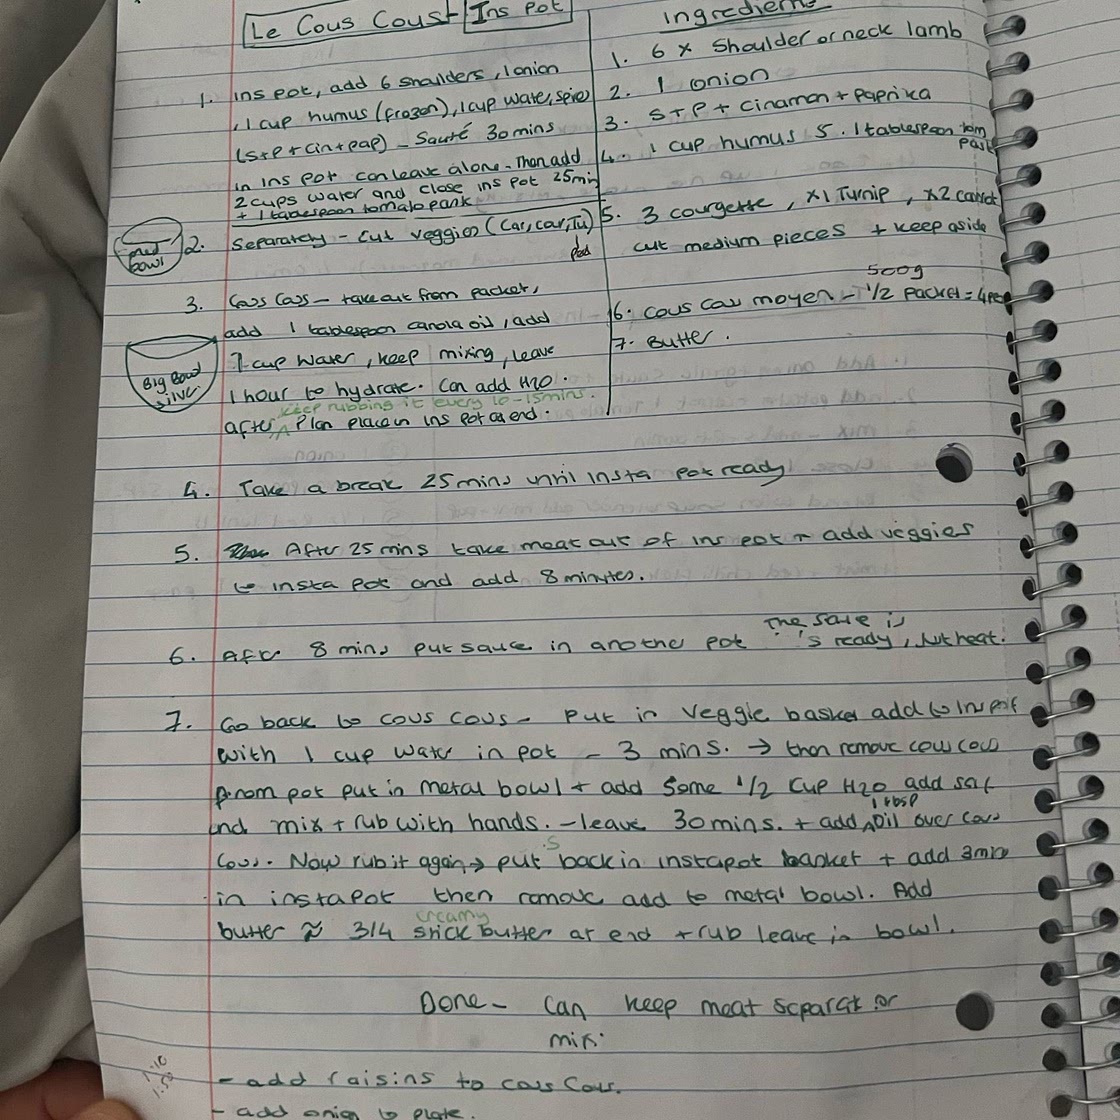 Le Cous Cous - Ins pot
1. ins pot, add 6 shoulders, 1 onion
, 1 cup humus (frozen), 1 cup water, spice
(s+p + cin + pap) - Sauté 30 mins
in ins pot can leave alone. Then add
2 cups water and close ins pot 25 min
+ 1 tablespoon tomato
med bowl
2. Separately - cut veggies (Car, cour, Tu)
3. Cous Cous - take out from packet,
add 1 tablespoon canola oil, add
1 cup water, keep mixing, leave
1 hour to hydrate. Can add H2O.
keep rubbing it every 10-15mins.
after, Plan place in ins pot on end.
Big Bowl silver
Ingredients
1. 6 x Shoulder or neck lamb
2. 1 onion
3. S+P + cinamon + Paprika
4. 1 cup humus 5. 1 tablespoon tom
5. 3 courgette, x1 Turnip, x2 carrot
cut medium pieces + keep aside
500g
6. cous cous moyen - 1/2 packet = 4
7. Butter.
4. Take a break 25 mins until insta pot ready
5. After 25 mins take meat out of ins pot + add veggies
to insta pot and add 8 minutes.
6. After 8 mins put sauce in another pot
the sauce is
's ready, heat.
7. Go back to cous cous - put in veggie basket add to ins pot
with 1 cup water in pot - 3 mins. → then remove cous cous
from pot put in metal bowl + add some 1/2 cup H2O add salt
and mix + rub with hands. - leave 30 mins. + add 1 tbsp oil over cous
cous. Now rub it again → puts back in instapot basket + add 3 min
in instapot then remove add to metal bowl. Add
butter ≈ 3/4 stick creamy butter at end + rub leave in bowl.
Done - can keep meat separate or
mix.
1:10
1:50
- add raisins to cous cous.
- add onion to plate.